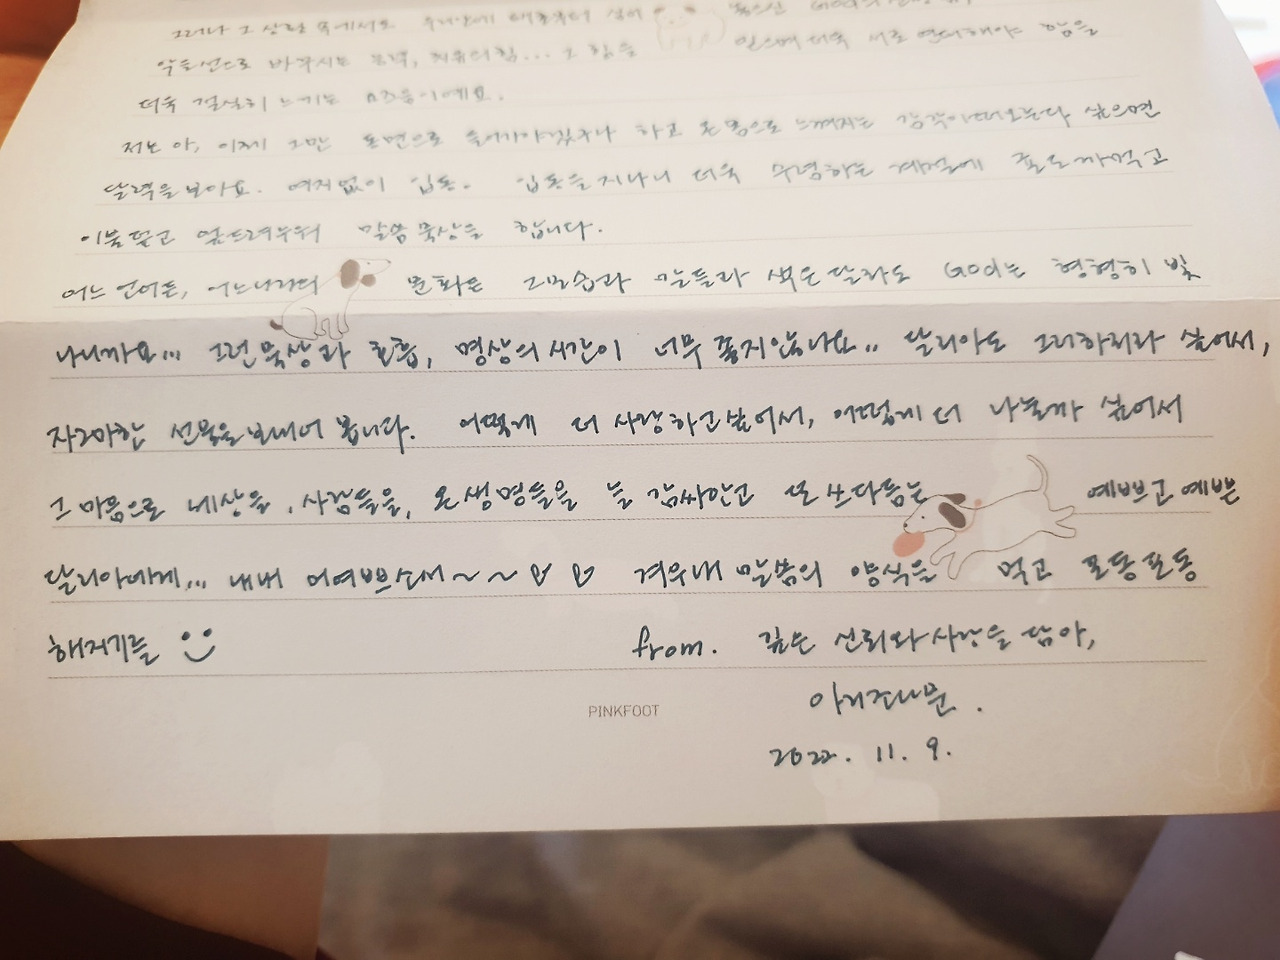 그러나 그 상황 속에서도 우리안에 태초부터 심어 놓으신 God의
악을 선으로 바꾸시는 능력, 치유의 힘... 그 힘을 믿으며 더욱 서로 연대해야 함을
더욱 절실히 느끼는 요즈음이예요.
저는 아, 이제 그만 동면으로 들어가야겠구나 하고 온몸으로 느껴지는 감각이 떠오른다 싶으면
달력을 보아요. 여지없이 입동. 입동을 지나니 더욱 수렴하는 계절에 귤도 까먹고
이불덮고 엎드려누워 말씀 묵상을 합니다.
어느 언어든, 어느나라의 문화든 그 모습과 말들과 색은 달라도 God는 형형히 빛
나니까요... 그런 묵상과 호흡, 명상의 시간이 너무 좋지않나요.. 달리아도 그러하리라 싶어서,
자그마한 선물을 보내어 봅니다. 어떻게 더 사랑하고싶어서, 어떻게 더 나눌까 싶어서
그 마음으로 세상을, 사람들을, 온생명들을 늘 감싸안고 또 쓰다듬는 예쁘고 예쁜
달리아에게... 내내 어여쁘소서~~♡♡ 겨우내 말씀의 양식을 먹고 포동포동
해지기를 :)
from. 깊은 신뢰와 사랑을 담아,
아리조나문.
2022. 11. 9.
PINKFOOT